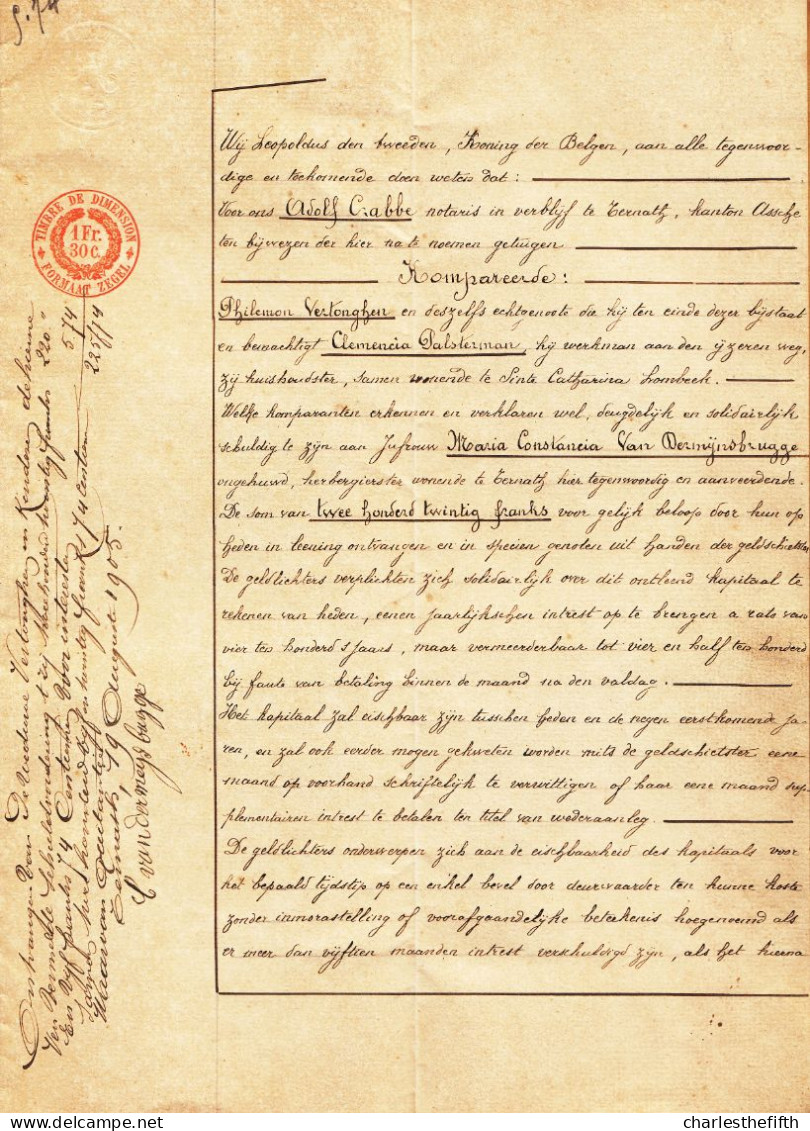 TIMBRE DE DIMENSION
1 Fr.
30 C.
FORMAAT ZEGEL
Wij Leopoldus den tweeden, Koning der Belgen, aan alle tegenwoor-
dige en toekomende doen weten dat:
Voor ons Adolf Crabbe notaris in verblijf te Ternath, kanton Assche
ten bijwezen der hier na te noemen getuigen
Kompareerde:
Philemon Vertonghen en deszelfs echtgenoote die hij ten einde dezer bijstaat
en bemachtigt Clemencia Palsterman, hij werkman aan den ijzeren weg,
zij huishoudster, samen wonende te Sinte Catharina Lombeek.
Welke komparanten erkennen en verklaren wel, deugdelijk en solidairlijk
schuldig te zijn aan Jufrouw Maria Constancia Van Dermijnsbrugge
ongehuwd, herbergierster wonende te Ternath hier tegenwoordig en aanveerdende.
De som van twee honderd twintig franks voor gelijk beloop door hun op
heden in leening ontvangen en in specien genoten uit handen der geldschietster
De geldlichters verplichten zich solidairlijk over dit ontleend kapitaal te
rekenen van heden, eenen jaarlijkschen intrest op te brengen a rato van
vier ten honderd 's jaars, maar vermeerderbaar tot vier en half ten honderd
bij faute van betaling binnen de maand na den valdag.
Het kapitaal zal eischbaar zijn tusschen heden en de negen eerstkomende ja-
ren, en zal ook eerder mogen gekweten worden mits de geldschietster eene
maand op voorhand schriftelijk te verwittigen of haar eene maand sup-
plementairen intrest te betalen ten titel van wederaanleg.
De geldlichters onderwerpen zich aan de eischbaarheid des kapitaals voor
het bepaald tijdstip op een enkel bevel door deurwaarder ten hunne koste
zonder inmorastelling of voorafgaandelijke beteekenis hoegenoemd als
er meer dan vijftien maanden intrest verschuldigd zijn, als het hierna
Ontvangen van De Weduwe Vertonghen in Kenden de heine
Ven Bermelde Schuldvordering t zij tweehonderd twintig franks 220"
En Vijf franks 74 Centiemen Voor intrest 5 74
Zamen twee honderd Vijf en twintig franks 74 centiem 225,74
Waarvan Quitantie
Ternath, 19 August 1905.
C vandermeysbrugge
Delcampe.net
charlesthefifth